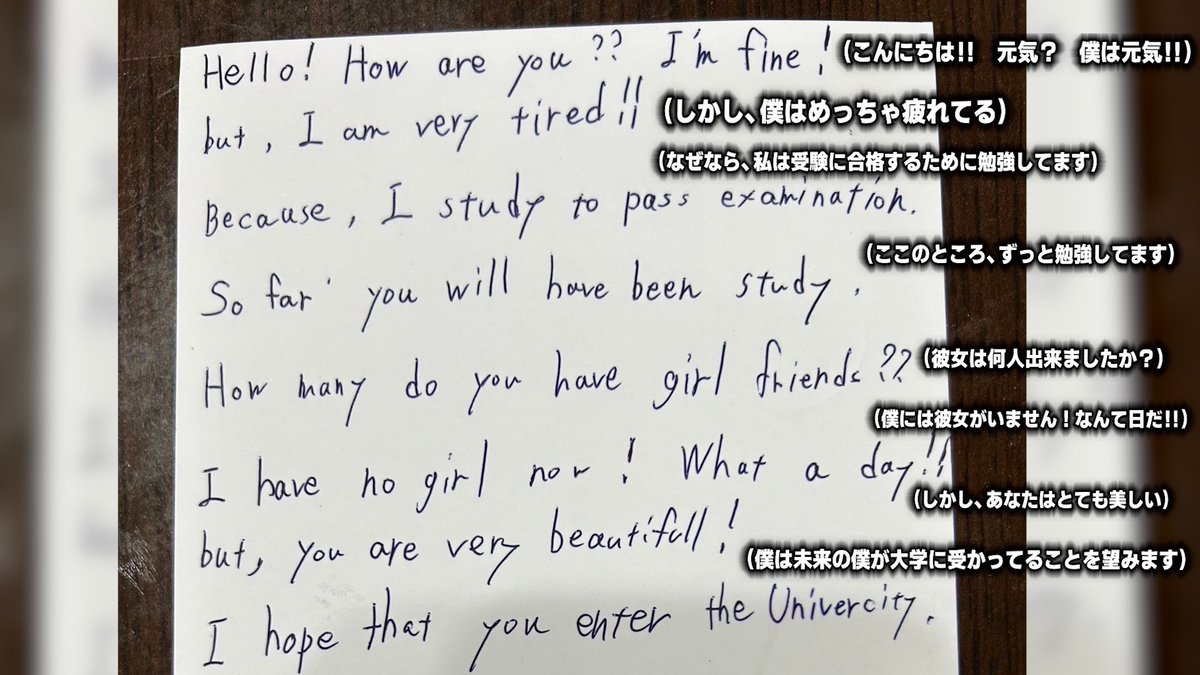 Hello! How are you?? I'm fine!
(こんにちは!! 元気? 僕は元気!!)
but, I am very tired!!
(しかし、僕はめっちゃ疲れてる)
(なぜなら、私は受験に合格するために勉強してます)
Because, I study to pass examination.
(ここのところ、ずっと勉強してます)
So far' you will have been study.
(彼女は何人出来ましたか?)
How many do you have girl friends??
(僕には彼女がいません!なんて日だ!!)
I have no girl now! What a day!!
(しかし、あなたはとても美しい)
but, you are very beautifull!
(僕は未来の僕が大学に受かってることを望みます)
I hope that you enter the Univercity.